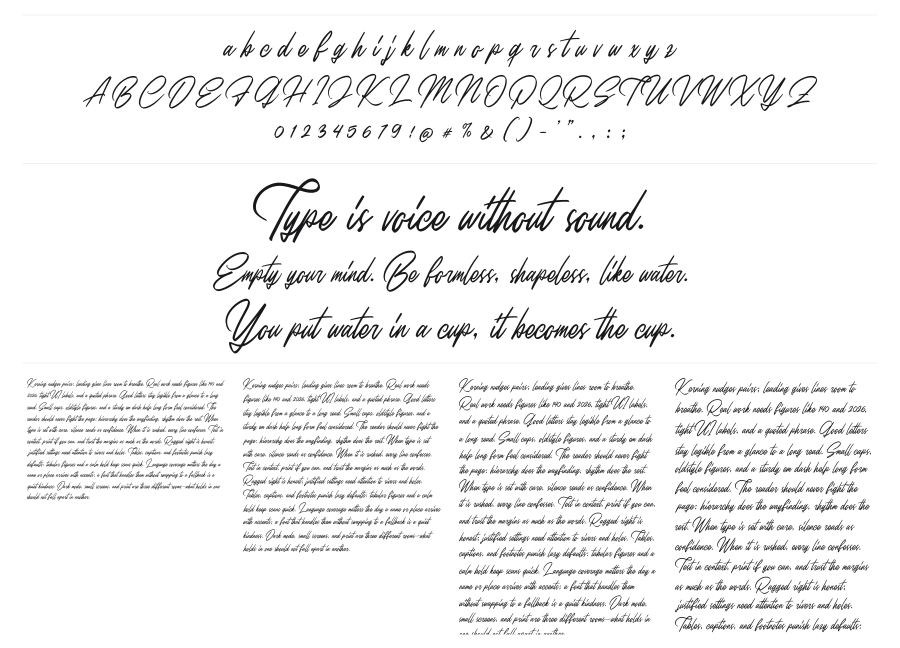 a b c d e f g h i j k l m n o p q r s t u v w x y z
A B C D E F G H I J K L M N O P Q R S T U V W X Y Z
0 1 2 3 4 5 6 7 9 ! @ # % & ( ) - ' " . , : ;
Type is voice without sound.
Empty your mind. Be formless, shapeless, like water.
You put water in a cup, it becomes the cup.
Kerning nudges pairs; leading gives lines room to breathe. Real work needs figures like 190 and
2026, tight UI labels, and a quoted phrase. Good letters stay legible from a glance to a long
read. Small caps, oldstyle figures, and a sturdy em dash help long form feel considered. The
reader should never fight the page: hierarchy does the wayfinding, rhythm does the rest. When
type is set with care, silence reads as confidence. When it is rushed, every line confesses. Test in
context, print if you can, and trust the margins as much as the words. Ragged right is honest;
justified settings need attention to rivers and holes. Tables, captions, and footnotes punish lazy
defaults: tabular figures and a calm bold keep scans quick. Language coverage matters the day a
name or place arrives with accents; a font that handles them without swapping to a fallback is a
quiet kindness. Dark mode, small screens, and print are three different rooms—what holds in one
should not fall apart in another.
Kerning nudges pairs; leading gives lines room to breathe. Real work needs
figures like 190 and 2026, tight UI labels, and a quoted phrase. Good letters
stay legible from a glance to a long read. Small caps, oldstyle figures, and a
sturdy em dash help long form feel considered. The reader should never fight the
page: hierarchy does the wayfinding, rhythm does the rest. When type is set
with care, silence reads as confidence. When it is rushed, every line confesses.
Test in context, print if you can, and trust the margins as much as the words.
Ragged right is honest; justified settings need attention to rivers and holes.
Tables, captions, and footnotes punish lazy defaults: tabular figures and a calm
bold keep scans quick. Language coverage matters the day a name or place arrives
with accents; a font that handles them without swapping to a fallback is a quiet
kindness. Dark mode, small screens, and print are three different rooms—what
holds in one should not fall apart in another.
Kerning nudges pairs; leading gives lines room to breathe.
Real work needs figures like 190 and 2026, tight UI labels,
and a quoted phrase. Good letters stay legible from a glance to
a long read. Small caps, oldstyle figures, and a sturdy em dash
help long form feel considered. The reader should never fight
the page: hierarchy does the wayfinding, rhythm does the rest.
When type is set with care, silence reads as confidence. When
it is rushed, every line confesses. Test in context, print if you can,
and trust the margins as much as the words. Ragged right is
honest; justified settings need attention to rivers and holes. Tables,
captions, and footnotes punish lazy defaults: tabular figures and a
calm bold keep scans quick. Language coverage matters the day a
name or place arrives with accents; a font that handles them
without swapping to a fallback is a quiet kindness. Dark mode,
small screens, and print are three different rooms—what holds in
one should not fall apart in another.
Kerning nudges pairs; leading gives lines room to
breathe. Real work needs figures like 190 and 2026,
tight UI labels, and a quoted phrase. Good letters
stay legible from a glance to a long read. Small caps,
oldstyle figures, and a sturdy em dash help long form
feel considered. The reader should never fight the
page: hierarchy does the wayfinding, rhythm does the
rest. When type is set with care, silence reads as
confidence. When it is rushed, every line confesses.
Test in context, print if you can, and trust the margins
as much as the words. Ragged right is honest;
justified settings need attention to rivers and holes.
Tables, captions, and footnotes punish lazy defaults: